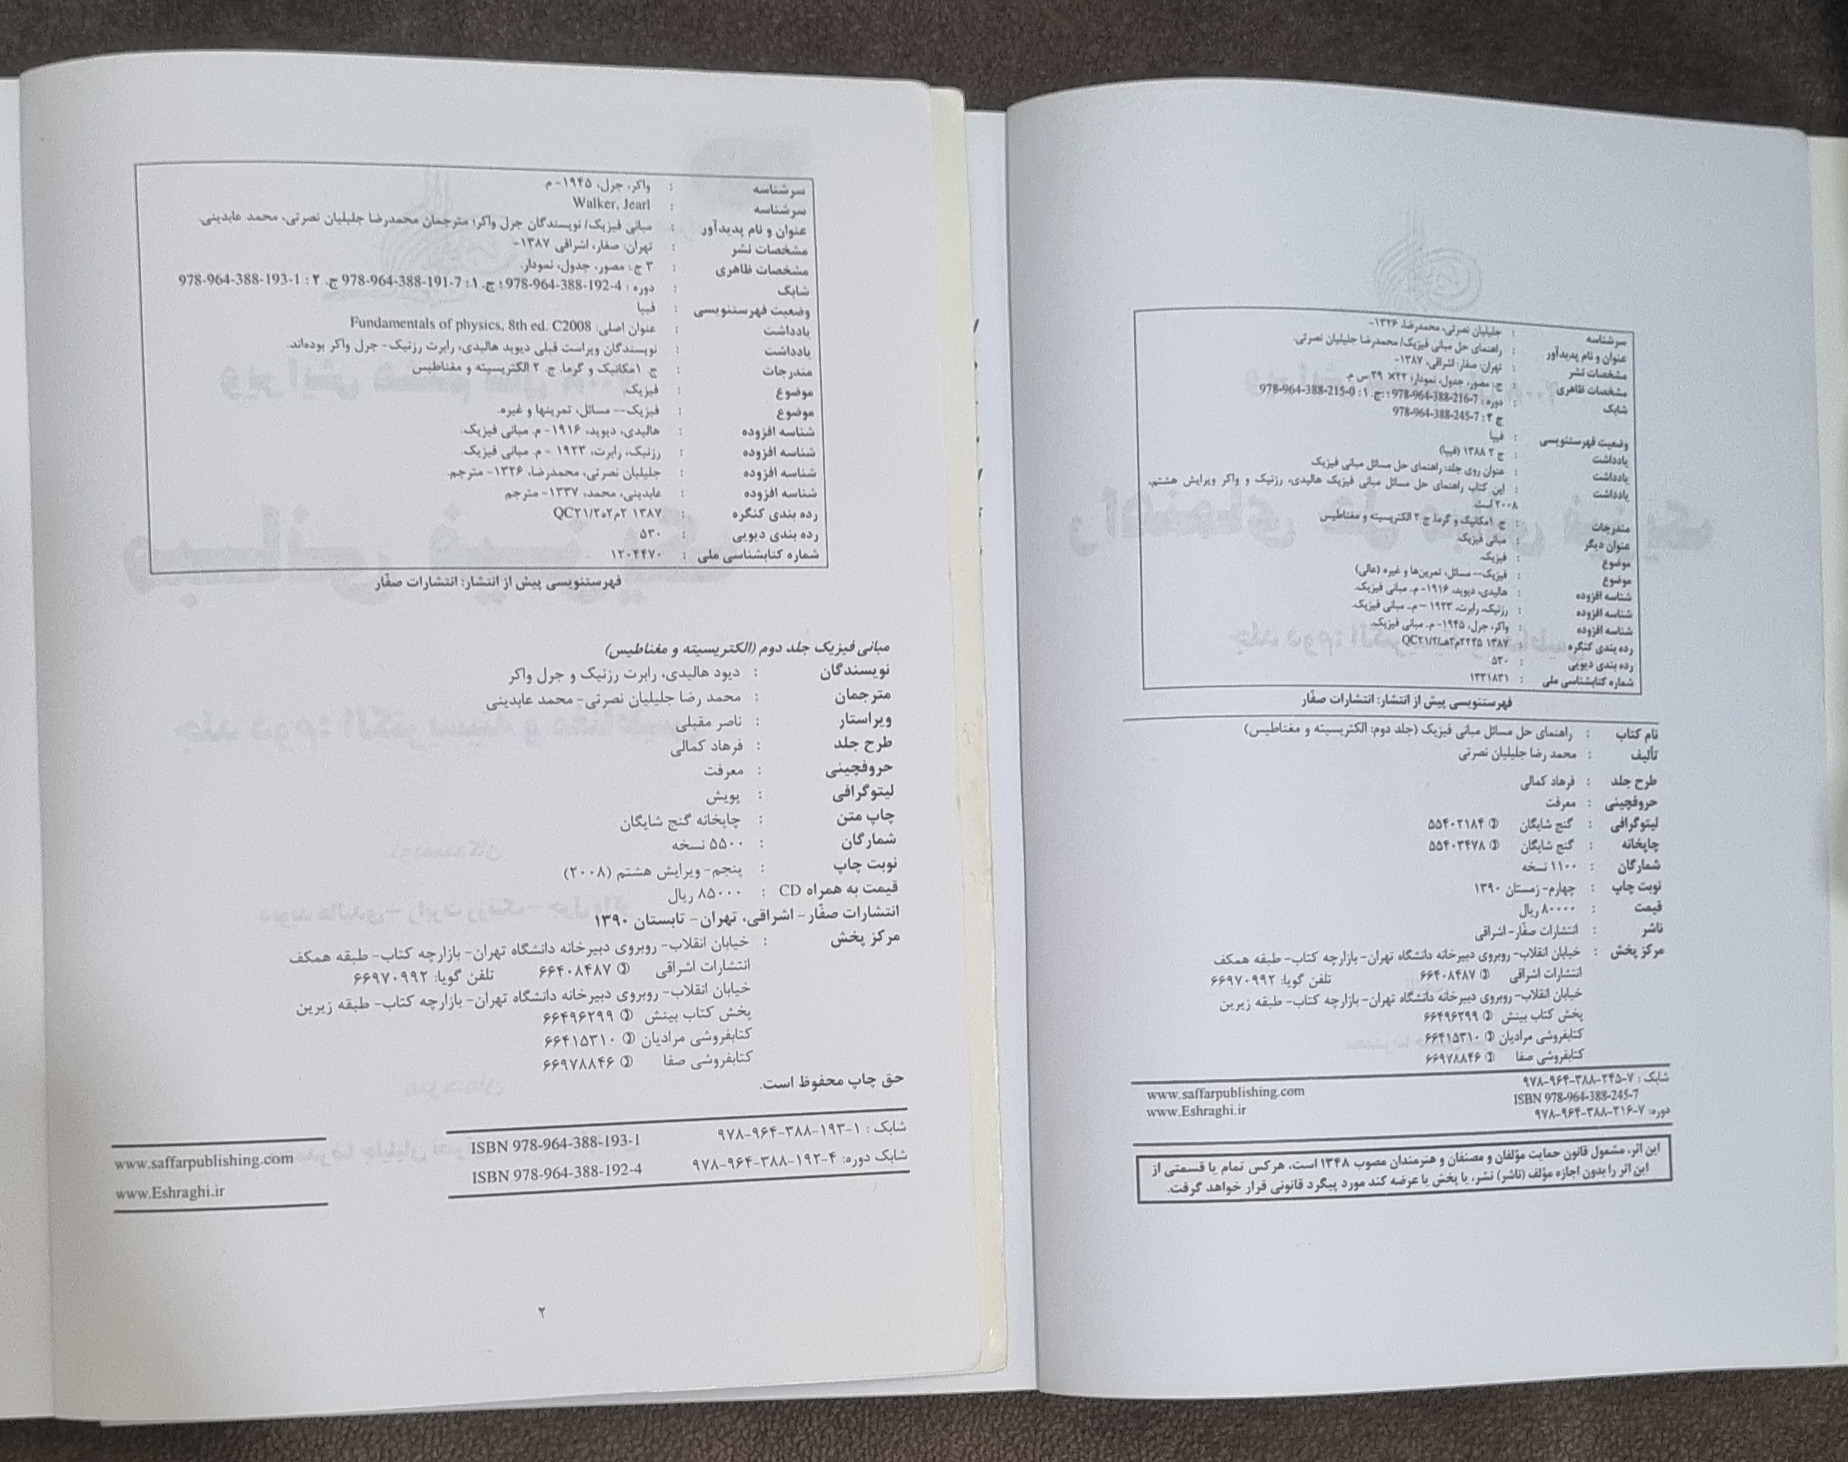 سرشناسه : واکر، جرل، ۱۹۴۵- م.
سرشناسه : Walker, Jearl
عنوان و نام پدیدآور : مبانی فیزیک/ نویسندگان جرل واکر؛ مترجمان محمدرضا جلیلیان نصرتی، محمد عابدینی.
مشخصات نشر : تهران: صفار، اشراقی ۱۳۸۷-
مشخصات ظاهری : ۳ ج: مصور، جدول، نمودار.
شابک : دوره : 4-192-388-964-978؛ ج. ۱: 7-191-388-964-978 ج. ۲ : 1-193-388-964-978
وضعیت فهرستنویسی : فیپا
یادداشت : عنوان اصلی: Fundamentals of physics, 8th ed. C2008
یادداشت : نویسندگان ویراست قبلی دیوید هالیدی، رابرت رزنیک- جرل واکر بوده‌اند.
مندرجات : ج. ۱مکانیک و گرما. ج. ۲ الکتریسیته و مغناطیس
موضوع : فیزیک.
موضوع : فیزیک-- مسائل، تمرینها و غیره.
شناسه افزوده : هالیدی، دیوید، ۱۹۱۶- م. مبانی فیزیک.
شناسه افزوده : رزنیک، رابرت، ۱۹۲۳ - م. مبانی فیزیک.
شناسه افزوده : جلیلیان نصرتی، محمدرضا، ۱۳۲۶- مترجم.
شناسه افزوده : عابدینی، محمد، ۱۳۳۷- مترجم
رده بندی کنگره : ۱۳۸۷ ۲م۲ه۲/QC۲۱
رده بندی دیویی : ۵۳۰
شماره کتابشناسی ملی : ۱۲۰۴۴۷۰
فهرستنویسی پیش از انتشار: انتشارات صفّار
مبانی فیزیک جلد دوم (الکتریسیته و مغناطیس)
نویسندگان : دیود هالیدی، رابرت رزنیک و جرل واکر
مترجمان : محمد رضا جلیلیان نصرتی- محمد عابدینی
ویراستار : ناصر مقبلی
طرح جلد : فرهاد کمالی
حروفچینی : معرفت
لیتوگرافی : پویش
چاپ متن : چاپخانه گنج شایگان
شمارگان : ۵۵۰۰ نسخه
نوبت چاپ : پنجم- ویرایش هشتم (۲۰۰۸)
قیمت به همراه CD : ۸۵۰۰۰ ریال
انتشارات صفّار- اشراقی، تهران- تابستان ۱۳۹۰
مرکز پخش : خیابان انقلاب- روبروی دبیرخانه دانشگاه تهران- بازارچه کتاب- طبقه همکف
انتشارات اشراقی ✆ ۶۶۴۰۸۴۸۷ تلفن گویا: ۶۶۹۷۰۹۹۲
خیابان انقلاب- روبروی دبیرخانه دانشگاه تهران- بازارچه کتاب- طبقه زیرین
پخش کتاب بینش ✆ ۶۶۴۹۶۲۹۹
کتابفروشی مرادیان ✆ ۶۶۴۱۵۳۱۰
کتابفروشی صفا ✆ ۶۶۹۷۸۸۴۶
حق چاپ محفوظ است.
شابک : ۱-۱۹۳-۳۸۸-۹۶۴-۹۷۸ ISBN 978-964-388-193-1
شابک دوره: ۴-۱۹۲-۳۸۸-۹۶۴-۹۷۸ ISBN 978-964-388-192-4
www.saffarpublishing.com
www.Eshraghi.ir
۲
سرشناسه : جلیلیان نصرتی، محمدرضا، ۱۳۲۶-
عنوان و نام پدیدآور : راهنمای حل مبانی فیزیک/ محمدرضا جلیلیان نصرتی.
مشخصات نشر : تهران: صفار: اشراقی، ۱۳۸۷-
مشخصات ظاهری : ج: مصور، جدول، نمودار؛ ۲۲× ۲۹ س م.
شابک : دوره : 7-216-388-964-978؛ ج. ۱: 0-215-388-964-978
ج ۲ : 7-245-388-964-978
وضعیت فهرستنویسی : فیپا
یادداشت : ج ۲ ۱۳۸۸ (فیپا)
یادداشت : عنوان روی جلد: راهنمای حل مسائل مبانی فیزیک
یادداشت : این کتاب راهنمای حل مسائل مبانی فیزیک هالیدی، رزنیک و واکر ویرایش هشتم،
۲۰۰۸ است.
مندرجات : ج. ۱مکانیک و گرما. ج ۲ الکتریسیته و مغناطیس
عنوان دیگر : مبانی فیزیک.
موضوع : فیزیک.
موضوع : فیزیک-- مسائل، تمرین‌ها و غیره (عالی)
شناسه افزوده : هالیدی، دیوید، ۱۹۱۶- م. مبانی فیزیک.
شناسه افزوده : رزنیک، رابرت، ۱۹۲۳ - م. مبانی فیزیک.
شناسه افزوده : واکر، جرل، ۱۹۴۵- م. مبانی فیزیک.
رده بندی کنگره : ۱۳۸۷
رده بندی دیویی : ۵۳۰
شماره کتابشناسی ملی : ۱۳۳۱۸۳۱
فهرستنویسی پیش از انتشار: انتشارات صفّار
نام کتاب : راهنمای حل مسائل مبانی فیزیک (جلد دوم: الکتریسیته و مغناطیس)
تألیف : محمد رضا جلیلیان نصرتی
طرح جلد : فرهاد کمالی
حروفچینی : معرفت
لیتوگرافی : گنج شایگان ✆ ۵۵۴۰۲۱۸۴
چاپخانه : گنج شایگان ✆ ۵۵۴۰۳۴۷۸
شمارگان : ۱۱۰۰ نسخه
نوبت چاپ : چهارم- زمستان ۱۳۹۰
قیمت : ۸۰۰۰۰ ریال
ناشر : انتشارات صفّار- اشراقی
مرکز پخش : خیابان انقلاب- روبروی دبیرخانه دانشگاه تهران- بازارچه کتاب- طبقه همکف
انتشارات اشراقی ✆ ۶۶۴۰۸۴۸۷ تلفن گویا: ۶۶۹۷۰۹۹۲
خیابان انقلاب- روبروی دبیرخانه دانشگاه تهران- بازارچه کتاب- طبقه زیرین
پخش کتاب بینش ✆ ۶۶۴۹۶۲۹۹
کتابفروشی مرادیان ✆ ۶۶۴۱۵۳۱۰
کتابفروشی صفا ✆ ۶۶۹۷۸۸۴۶
شابک : ۷-۲۴۵-۳۸۸-۹۶۴-۹۷۸
ISBN 978-964-388-245-7
دوره: ۷-۲۱۶-۳۸۸-۹۶۴-۹۷۸
www.saffarpublishing.com
www.Eshraghi.ir
این اثر، مشمول قانون حمایت مؤلفان و مصنفان و هنرمندان مصوب ۱۳۴۸ است، هرکس تمام یا قسمتی از
این اثر را بدون اجازه مؤلف (ناشر) نشر، یا پخش یا عرضه کند مورد پیگرد قانونی قرار خواهد گرفت.